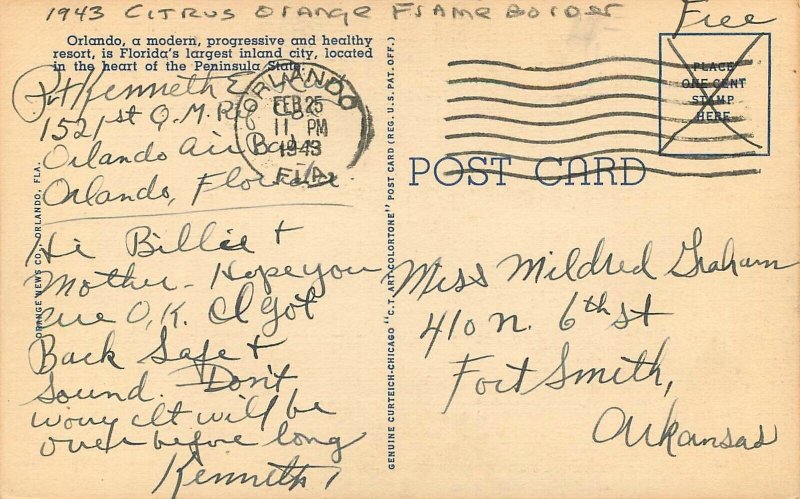 1943 CITRUS ORANGE FRAME BORDER
Free
Orlando, a modern, progressive and healthy
resort, is Florida's largest inland city, located
in the heart of the Peninsula State.
Pvt Kenneth E.
1521st Q.M.
Orlando Air Base
Orlando, Florida.
ORLANDO
FEB 25
11 PM
1943
FLA.
PLACE
ONE CENT
STAMP
HERE
POST CARD
Hi Billie +
Mother - Hope you
are O.K. I got
Back Safe +
Sound. Don't
worry It will be
over before long
Kenneth
Miss Mildred Graham
410 N. 6th St
Fort Smith,
Arkansas
ORANGE NEWS CO., ORLANDO, FLA.
GENUINE CURTEICH-CHICAGO "C.T. ART-COLORTONE" POST CARD (REG. U.S. PAT. OFF.)